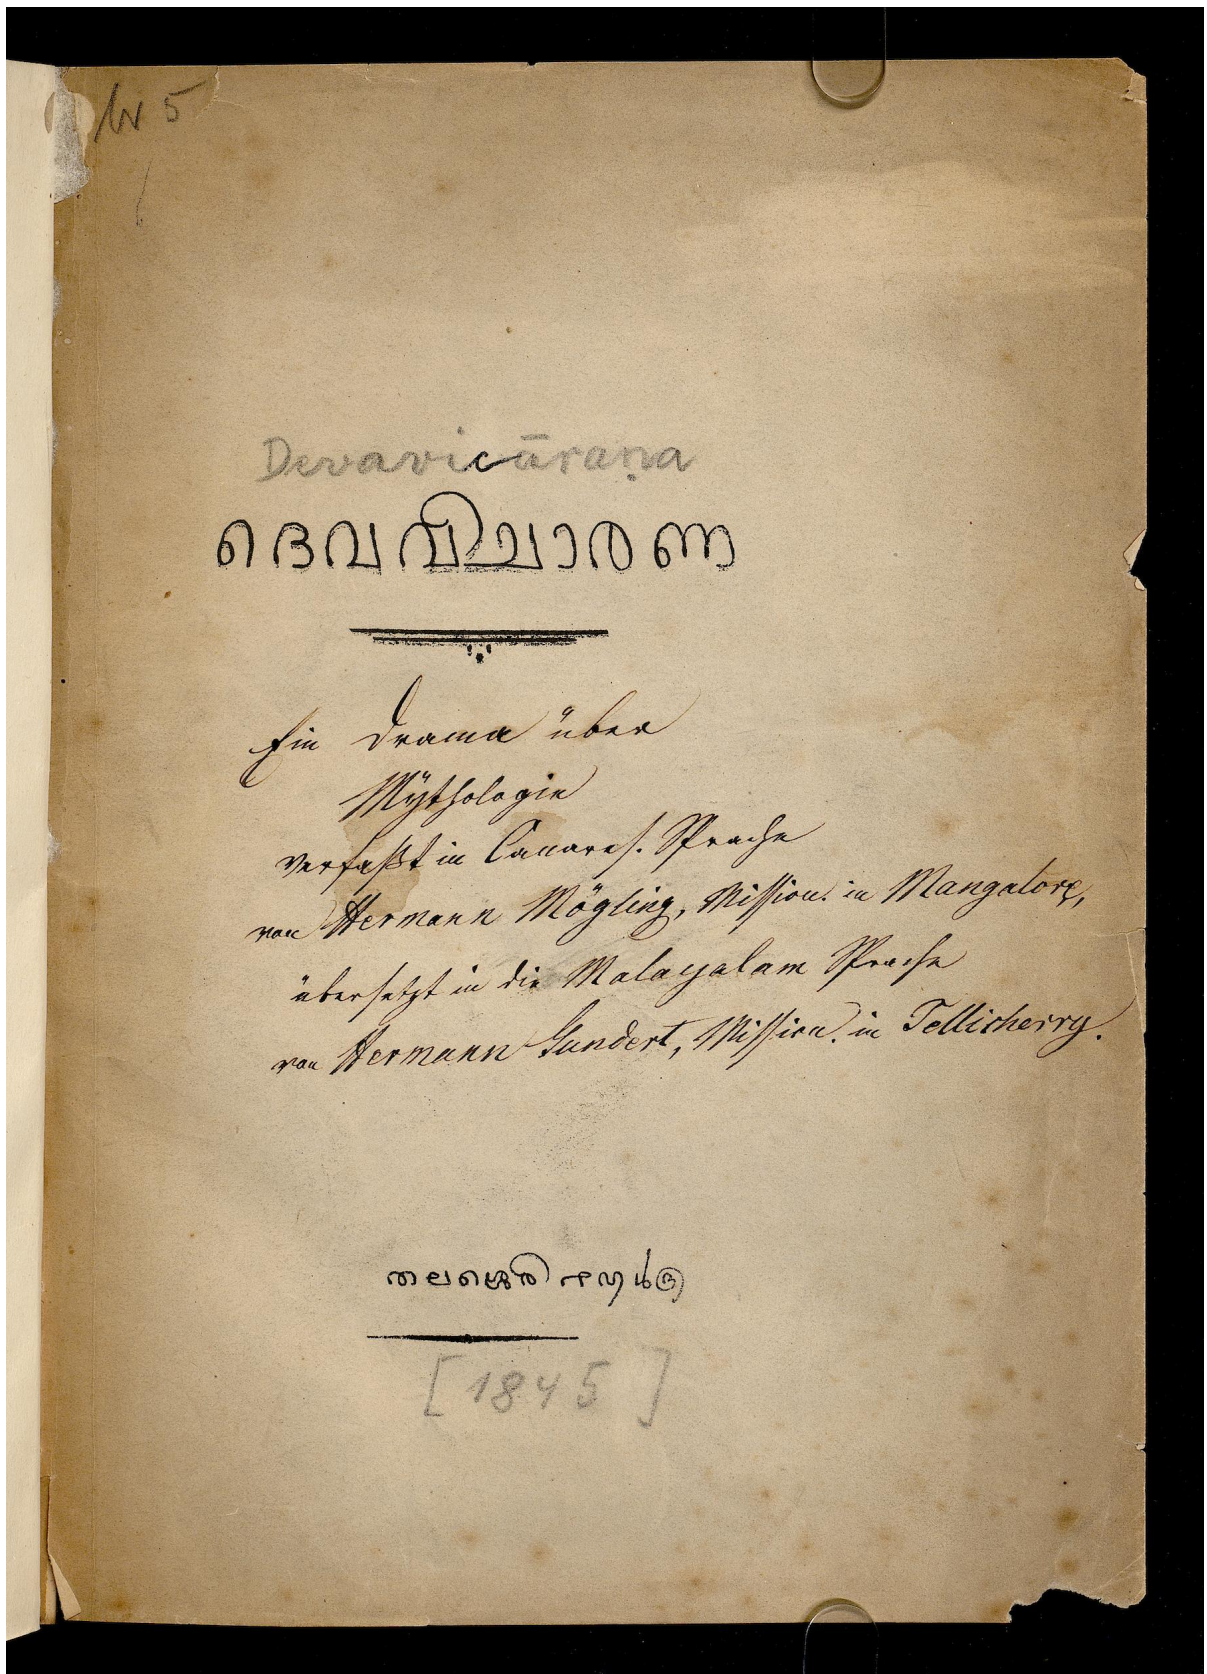 5
Devavicāraṇa
ദെവവിചാരണ
Ein Drama über
Mÿthologie
verfaßt in Canares. Sprache
von Hermann Mögling, Mission. in Mangalore,
übersetzt in die Malayalam Sprache
von Hermann Gundert, Mission. in Tellicherry.
തലശ്ശെരി
[1845]